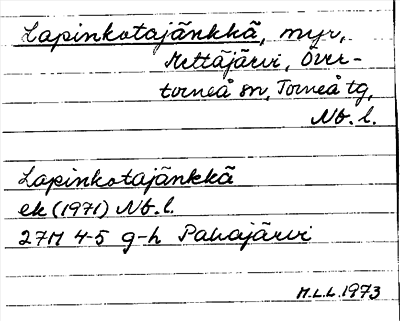 Lapinkotajänkkä, myr,
Mettäjärvi, Över-
torneå sn, Torneå tg,
Nb. l.
Lapinkotajänkkä
ek (1971) Nb. l.
27M 4-5 g-h Pahajärvi
M.L.L. 1973